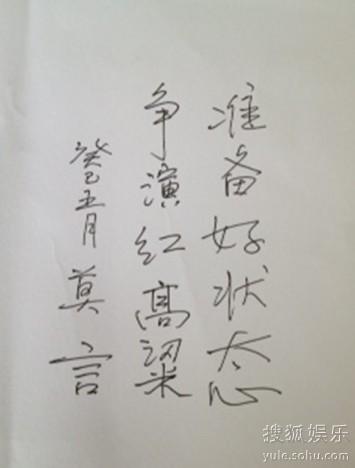 准备好状态
争演红高粱
癸巳五月
莫言
搜狐娱乐
yule.sohu.com